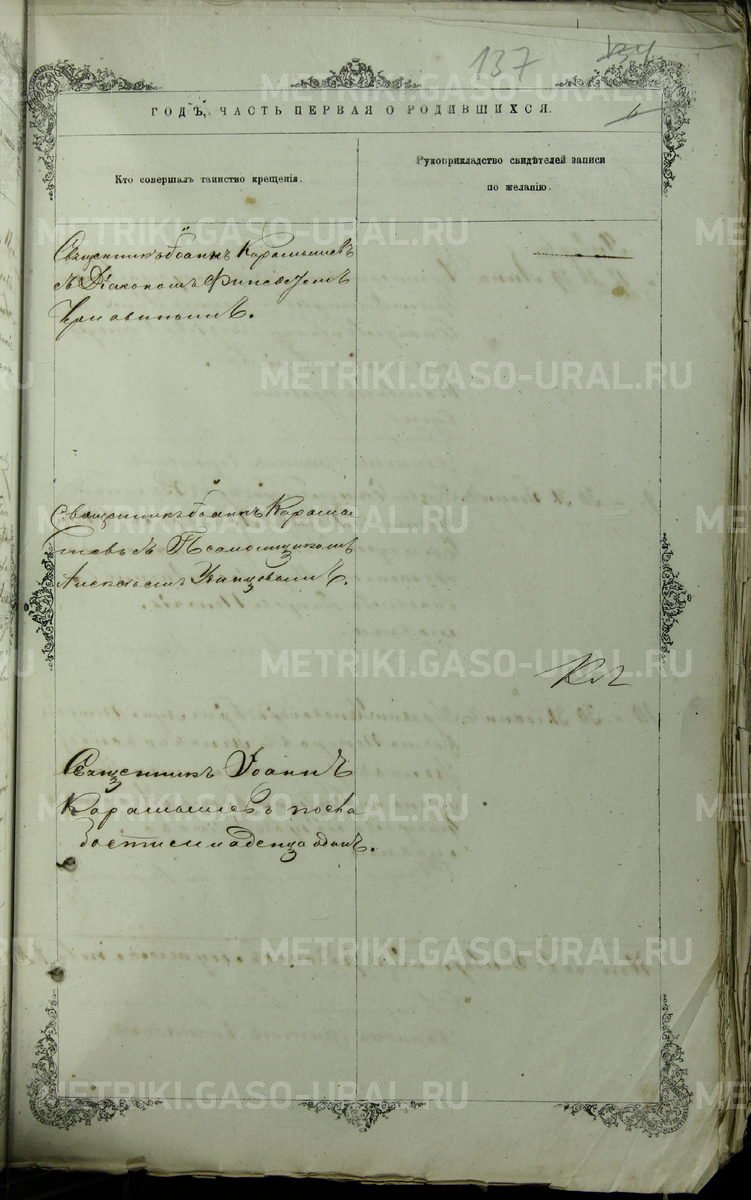 137
134
6
ГОДЪ, ЧАСТЬ ПЕРВАЯ О РОДИВШИХСЯ.
Кто совершалъ таинство крещенія.
Рукоприкладство свидѣтелей записи
по желанію.
Священникъ Іоаннъ Карамышевъ
съ Діакономъ
Священникъ Іоаннъ Карамы
шевъ съ Псаломщикомъ
Алексѣемъ
Священникъ Іоаннъ
Карамышевъ по сла
бости младенца одинъ.
METRIKI.GASO-URAL.RU